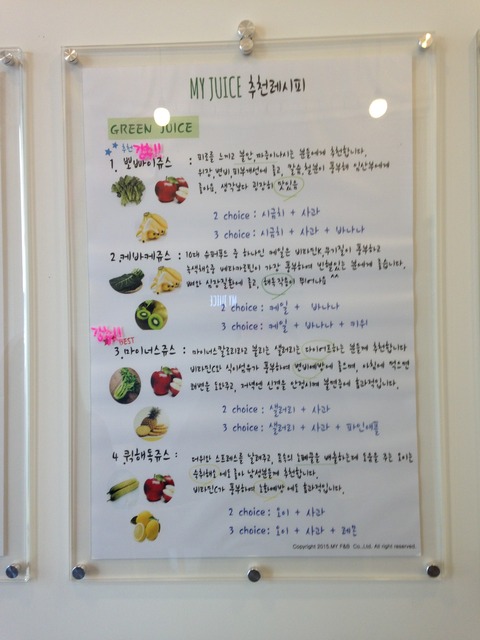 MY JUICE 추천레시피
GREEN JUICE
추천 강추!!
1. 뽀빠이쥬스 : 피로를 느끼고 불안, 짜증이나시는 분들에게 추천합니다.
위장, 변비, 피부개선에 좋고, 칼슘, 철분이 풍부해 임산부에게
좋아요. 생각보다 굉장히 맛있음
2 choice : 시금치 + 사과
3 choice : 시금치 + 사과 + 바나나
2. 케바케쥬스 : 10대 슈퍼푸드 중 하나인 케일은 비타민K, 무기질이 풍부하고
녹색채소중 베타카로틴이 가장 풍부하여 빈혈있는 분에게 좋습니다.
뼈와 심장질환에 좋고, 해독작용이 뛰어나요 ^^
2 choice : 케일 + 바나나
3 choice : 케일 + 바나나 + 키위
강추!!
BEST
3. 마이너스쥬스 : 마이너스칼로리라고 불리는 샐러리는 다이어트하는 분들께 추천합니다
비타민C와 식이섬유가 풍부하여 변비예방에 좋으며, 아침에 먹으면
쾌변을 도와주고, 저녁엔 신경을 안정시켜 불면증에 효과적입니다.
2 choice : 샐러리 + 사과
3 choice : 샐러리 + 사과 + 파인애플
4. 쿼해독쥬스 : 더위와 스트레스를 날려주고, 몸속의 노폐물을 배출하는데 도움을 주는 오이는
숙취해소에도 좋아 남성분들께 추천합니다.
비타민C가 풍부하여 노화예방에도 효과적입니다.
2 choice : 오이 + 사과
3 choice : 오이 + 사과 + 레몬
Copyright 2015 MY F&B Co.,Ltd. All right reserved.